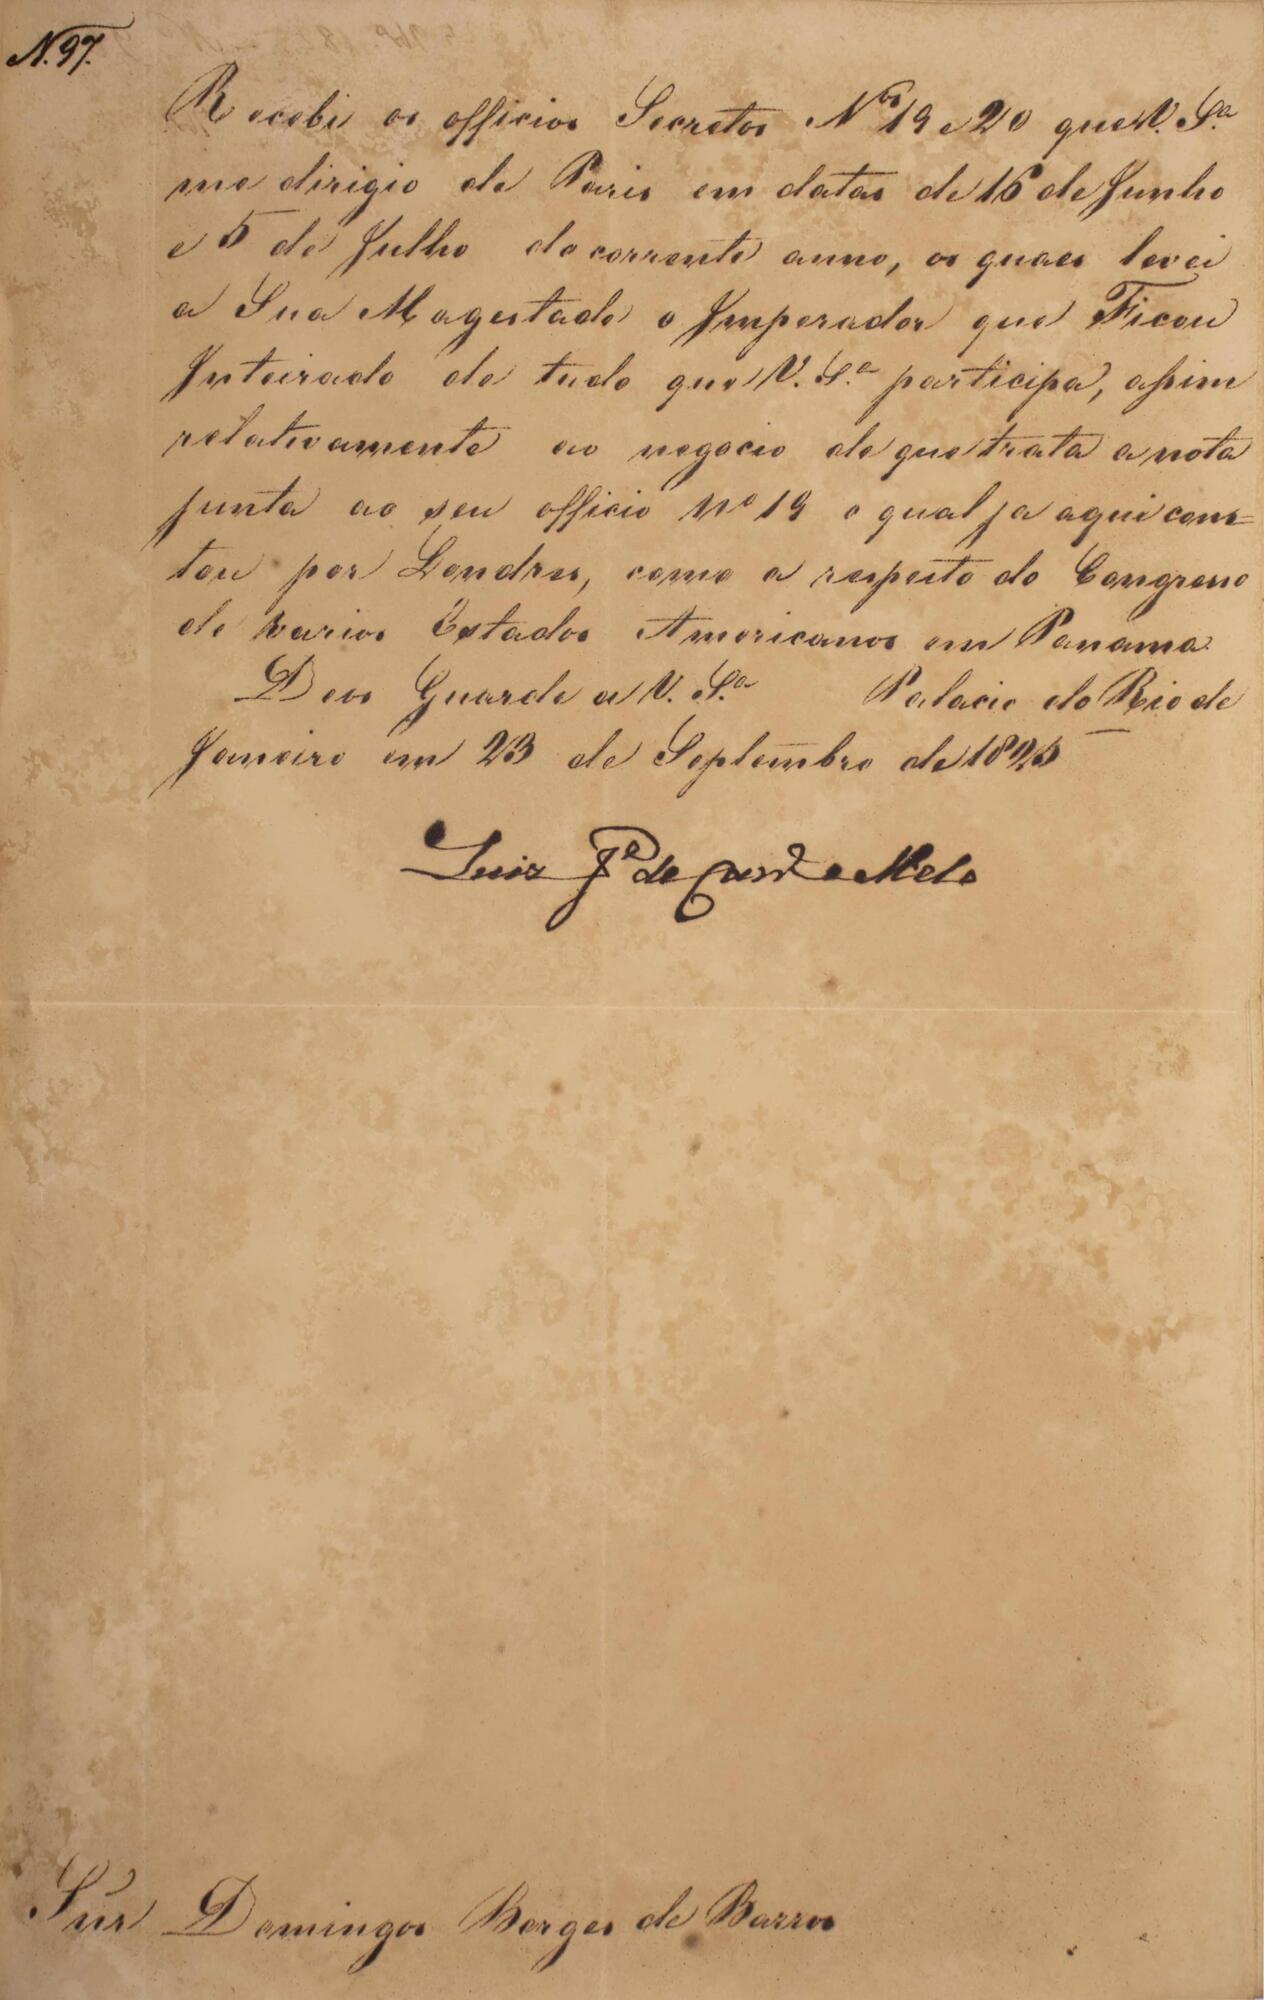 N. 97.
Recebi os officios Secretos Nos 19 e 20 que V. Sa
me dirigio de Paris em datas de 16 de Junho
e 5 de Julho do corrente anno, os quaes levei
a Sua Magestade o Imperador que Ficou
Inteirado de tudo que V. S.a participa, assim
relativamente ao negocio de que trata a nota
junta ao seu officio No 19 o qual ja aqui cons=
tou por Londres, como a respeito do Congresso
de varios Estados Americanos em Panama.
Deos Guarde a V. S.a Palacio do Rio de
Janeiro em 23 de Septembro de 1825
Luiz Je de Carvo e Melo
Snr Domingos Borges de Barros